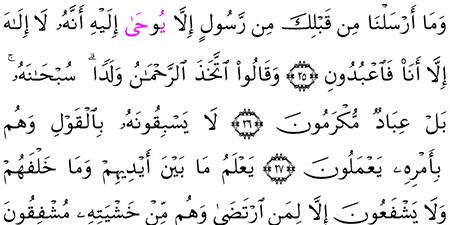 وَمَآ أَرْسَلْنَا مِن قَبْلِكَ مِن رَّسُولٍ إِلَّا يُوحَىٰٓ إِلَيْهِ أَنَّهُۥ لَآ إِلَـٰهَ
إِلَّآ أَنَا۠ فَٱعْبُدُونِ ٢٥ وَقَالُوا۟ ٱتَّخَذَ ٱلرَّحْمَـٰنُ وَلَدًا ۗ سُبْحَـٰنَهُۥ ۚ
بَلْ عِبَادٌ مُّكْرَمُونَ ٢٦ لَا يَسْبِقُونَهُۥ بِٱلْقَوْلِ وَهُم
بِأَمْرِهِۦ يَعْمَلُونَ ٢٧ يَعْلَمُ مَا بَيْنَ أَيْدِيهِمْ وَمَا خَلْفَهُمْ
وَلَا يَشْفَعُونَ إِلَّا لِمَنِ ٱرْتَضَىٰ وَهُم مِّنْ خَشْيَتِهِۦ مُشْفِقُونَ